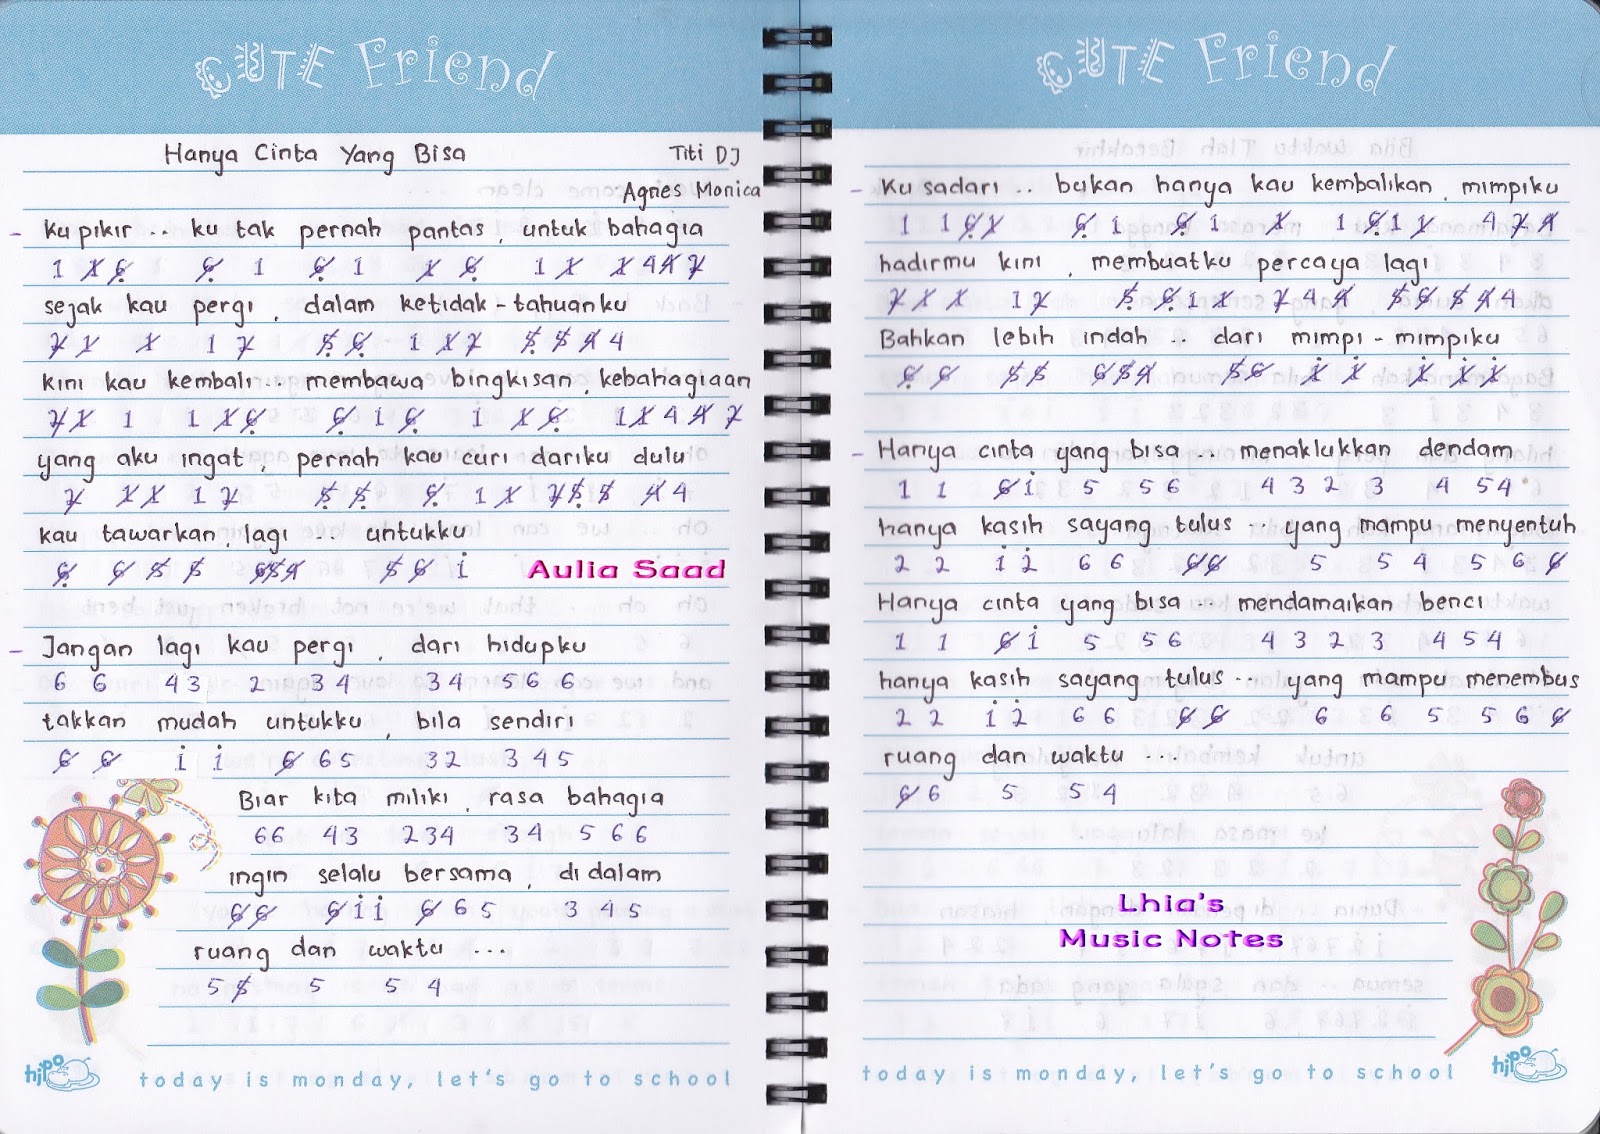 CUTE Friend
Hanya Cinta Yang Bisa Titi DJ
Agnes Monica
- Ku pikir .. ku tak pernah pantas, untuk bahagia
1 1 6 6 1 6 1 1 6 1 1 1 4 4 7
sejak kau pergi, dalam ketidak-tahuanku
kini kau kembali .. membawa bingkisan, kebahagiaan
yang aku ingat, pernah kau curi dariku dulu
kau tawarkan, lagi ... untukku
Aulia Saad
- Jangan lagi kau pergi, dari hidupku
6 6 4 3 2 3 4 3 4 5 6 6
takkan mudah untukku, bila sendiri
6 6 i i 6 6 5 3 2 3 4 5
Biar kita miliki, rasa bahagia
6 6 4 3 2 3 4 3 4 5 6 6
ingin selalu bersama, di dalam
6 6 6 i i 6 6 5 3 4 5
ruang dan waktu ....
5 5 5 5 4
hipo
today is monday, let's go to school
CUTE Friend
- Ku sadari .. bukan hanya kau kembalikan, mimpiku
hadirmu kini, membuatku percaya lagi
Bahkan lebih indah .. dari mimpi - mimpiku
- Hanya cinta yang bisa ... menaklukkan dendam
1 1 6 i 5 5 6 4 3 2 3 4 5 4
hanya kasih sayang tulus .. yang mampu menyentuh
2 2 i 2 6 6 6 6 5 5 4 5 6 6
Hanya cinta yang bisa ... mendamaikan benci
1 1 6 i 5 5 6 4 3 2 3 4 5 4
hanya kasih sayang tulus ... yang mampu menembus
2 2 i 2 6 6 6 6 6 6 5 5 6 6
ruang dan waktu ....
6 6 5 5 4
Lhia's
Music Notes
today is monday, let's go to school
hipo